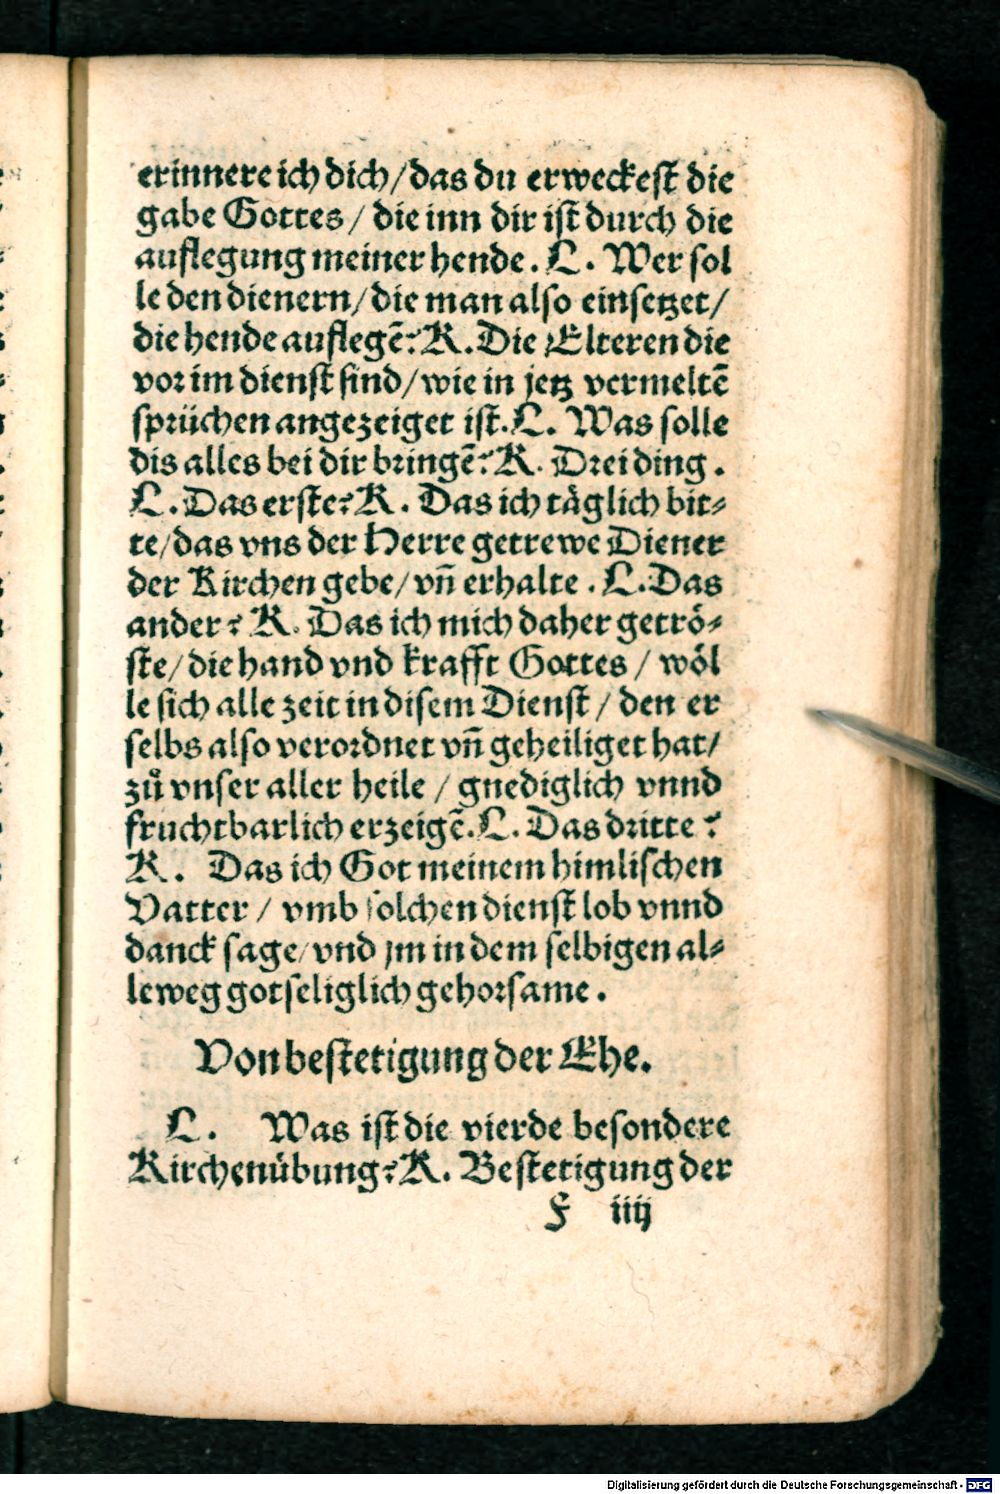 erinnere ich dich/das du erweckest die
gabe Gottes / die inn dir ist durch die
auflegung meiner hende. L. Wer sol
le den dienern/die man also einsetzet/
die hende auflegē? K. Die Elteren die
vor im dienst sind/wie in jetz vermeltē
sprüchen angezeiget ist. L. Was solle
dis alles bei dir bringē? K. Drei ding.
L. Das erste? K. Das ich täglich bit⸗
te/das vns der Herre getrewe Diener
der Kirchen gebe/vñ erhalte. L. Das
ander? K. Das ich mich daher getrö⸗
ste/die hand vnd krafft Gottes / wöl
le sich alle zeit in disem Dienst / den er
selbs also verordnet vñ geheiliget hat/
zů vnser aller heile / gnediglich vnnd
fruchtbarlich erzeigē. L. Das dritte?
K. Das ich Got meinem himlischen
Vatter / vmb solchen dienst lob vnnd
danck sage/vnd jm in dem selbigen al⸗
leweg gotseliglich gehorsame.
Von bestetigung der Ehe.
L. Was ist die vierde besondere
Kirchenübung? K. Bestetigung der
F iiij
Digitalisierung gefördert durch die Deutsche Forschungsgemeinschaft - DFG